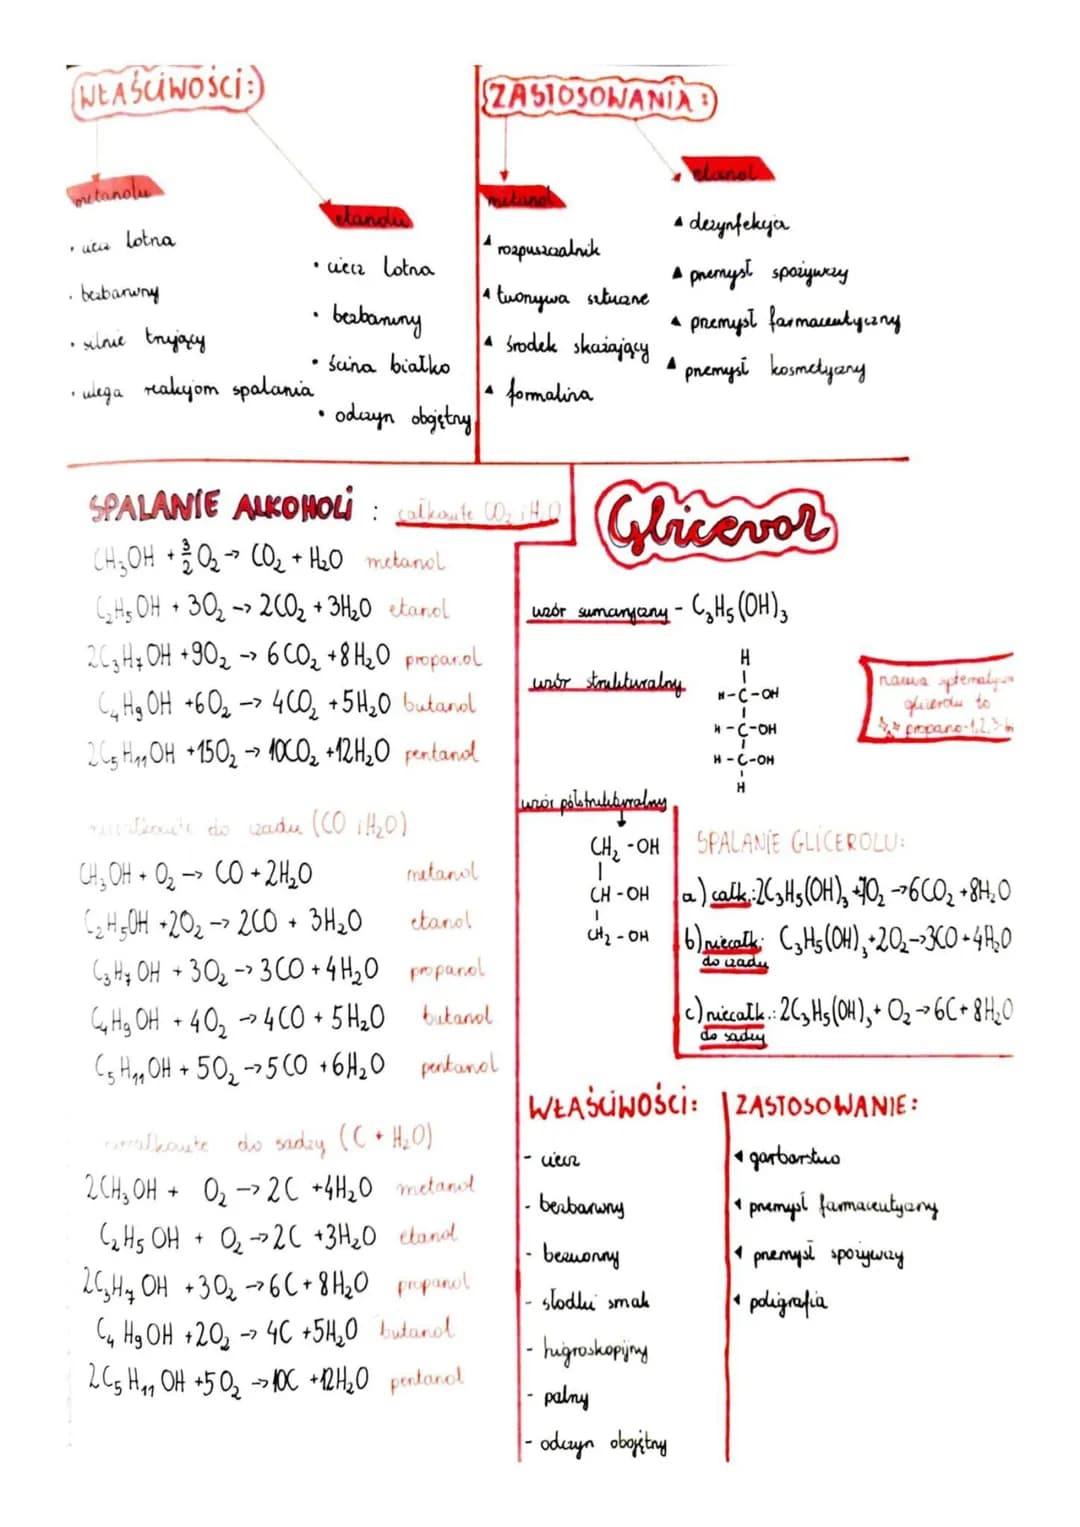 WŁAŚCIWOŚCI:
metanolu
• ciecz lotna
• bezbarwny
• silnie trujący
• ulega reakcjom spalania
etanolu
• ciecz lotna
• bezbarwny
• ścina białko
• odczyn obojętny
ZASTOSOWANIA:
metanol
▲ rozpuszczalnik
▲ tworzywa sztuczne
▲ środek skażający
▲ formalina
etanol
▲ dezynfekcja
▲ przemysł spożywczy
▲ przemysł farmaceutyczny
▲ przemysł kosmetyczny
SPALANIE ALKOHOLI : całkowite CO₂ i H₂O
CH₃OH + 3/2 O₂ → CO₂ + H₂O metanol
C₂H₅OH + 3O₂ → 2CO₂ + 3H₂O etanol
2C₃H₇OH + 9O₂ → 6CO₂ + 8H₂O propanol
C₄H₉OH + 6O₂ → 4CO₂ + 5H₂O butanol
2C₅H₁₁OH + 15O₂ → 10CO₂ + 12H₂O pentanol
niecałkowite do czadu (CO i H₂O)
CH₃OH + O₂ → CO + 2H₂O metanol
C₂H₅OH + 2O₂ → 2CO + 3H₂O etanol
C₃H₇OH + 3O₂ → 3CO + 4H₂O propanol
C₄H₉OH + 4O₂ → 4CO + 5H₂O butanol
C₅H₁₁OH + 5O₂ → 5CO + 6H₂O pentanol
niecałkowite do sadzy (C + H₂O)
2CH₃OH + O₂ → 2C + 4H₂O metanol
C₂H₅OH + O₂ → 2C + 3H₂O etanol
2C₃H₇OH + 3O₂ → 6C + 8H₂O propanol
C₄H₉OH + 2O₂ → 4C + 5H₂O butanol
2C₅H₁₁OH + 5O₂ → 10C + 12H₂O pentanol
Glicerol
wzór sumaryczny - C₃H₅(OH)₃
wzór strukturalny
H
H-C-OH
H-C-OH
H-C-OH
H
nazwa
glicerolu to
propano-1,2,3-
wzór półstrukturalny
CH₂-OH
CH-OH
CH₂-OH
SPALANIE GLICEROLU:
a) całk.: 2C₃H₅(OH)₃ + 7O₂ → 6CO₂ + 8H₂O
b) niecałk.: C₃H₅(OH)₃ + 2O₂ → 3CO + 4H₂O
do czadu
c) niecałk.: 2C₃H₅(OH)₃ + O₂ → 6C + 8H₂O
do sadzy
WŁAŚCIWOŚCI:
- ciecz
- bezbarwny
- bezwonny
- słodki smak
- higroskopijny
- palny
- odczyn obojętny
ZASTOSOWANIE:
◂ garbarstwo
◂ przemysł farmaceutyczny
◂ przemysł spożywczy
◂ poligrafia